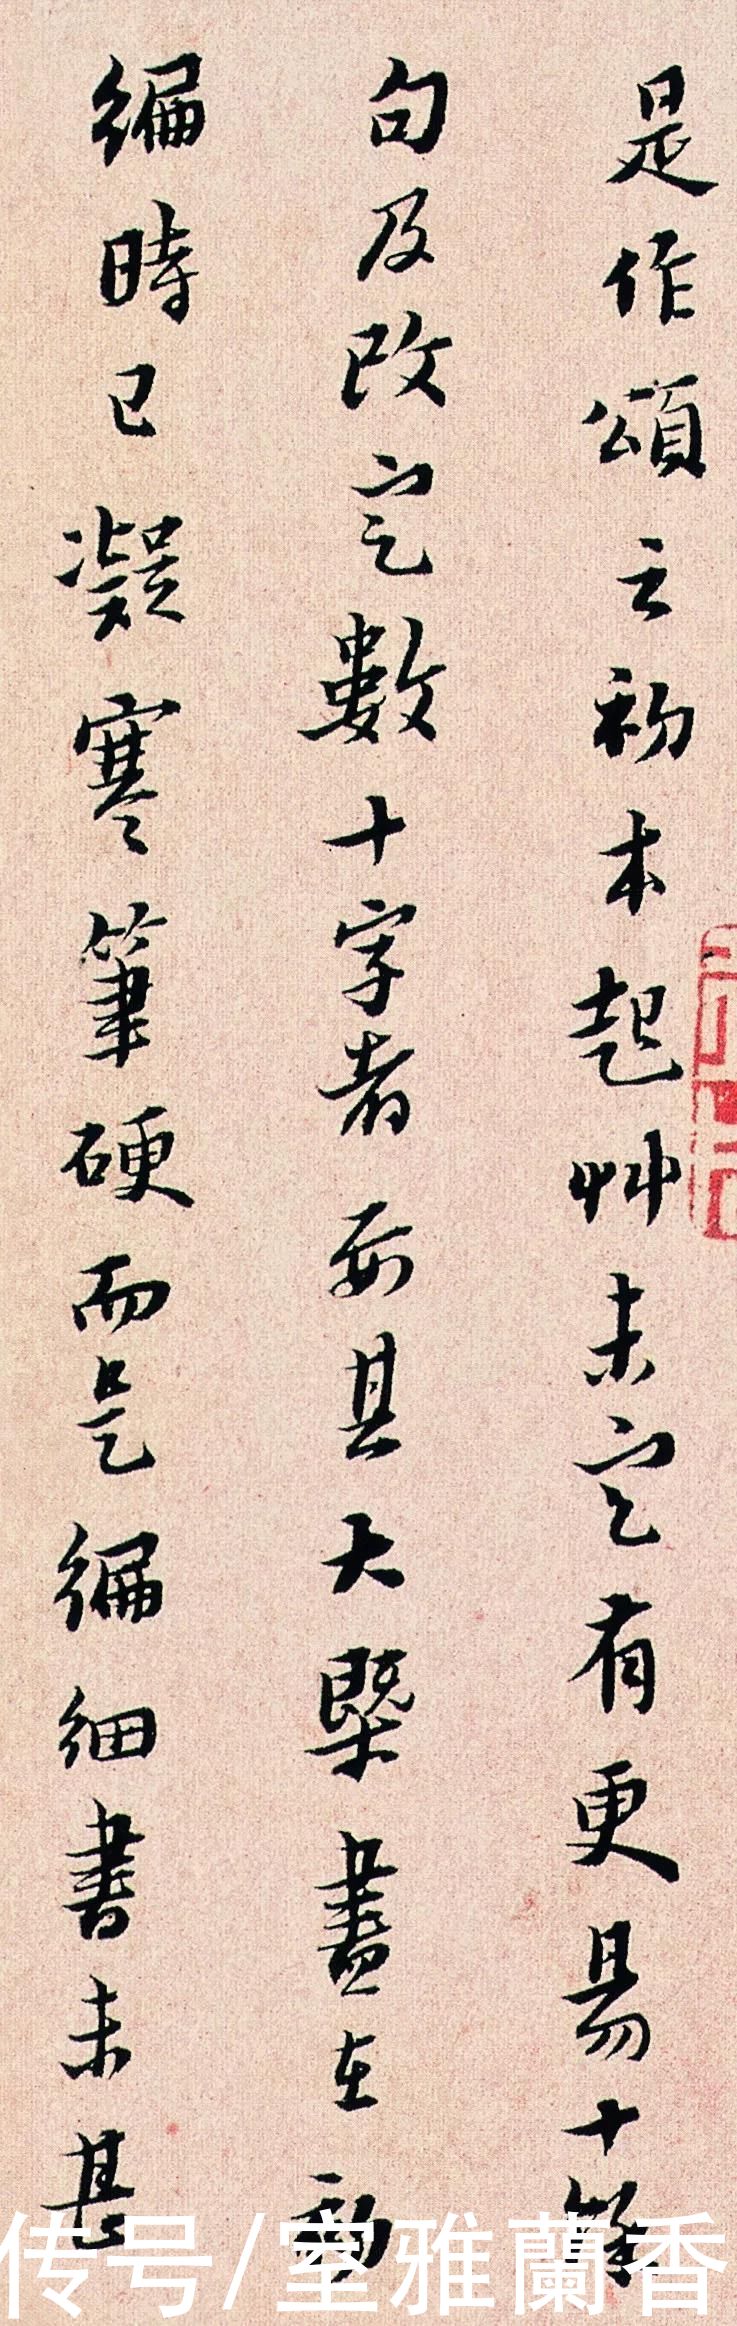 是作頌之初本起艸未定有更易十餘
句及改定數十字者要其大槩盡在初
編時已凝寒筆硬而是編細書未甚
传号/室雅蘭香